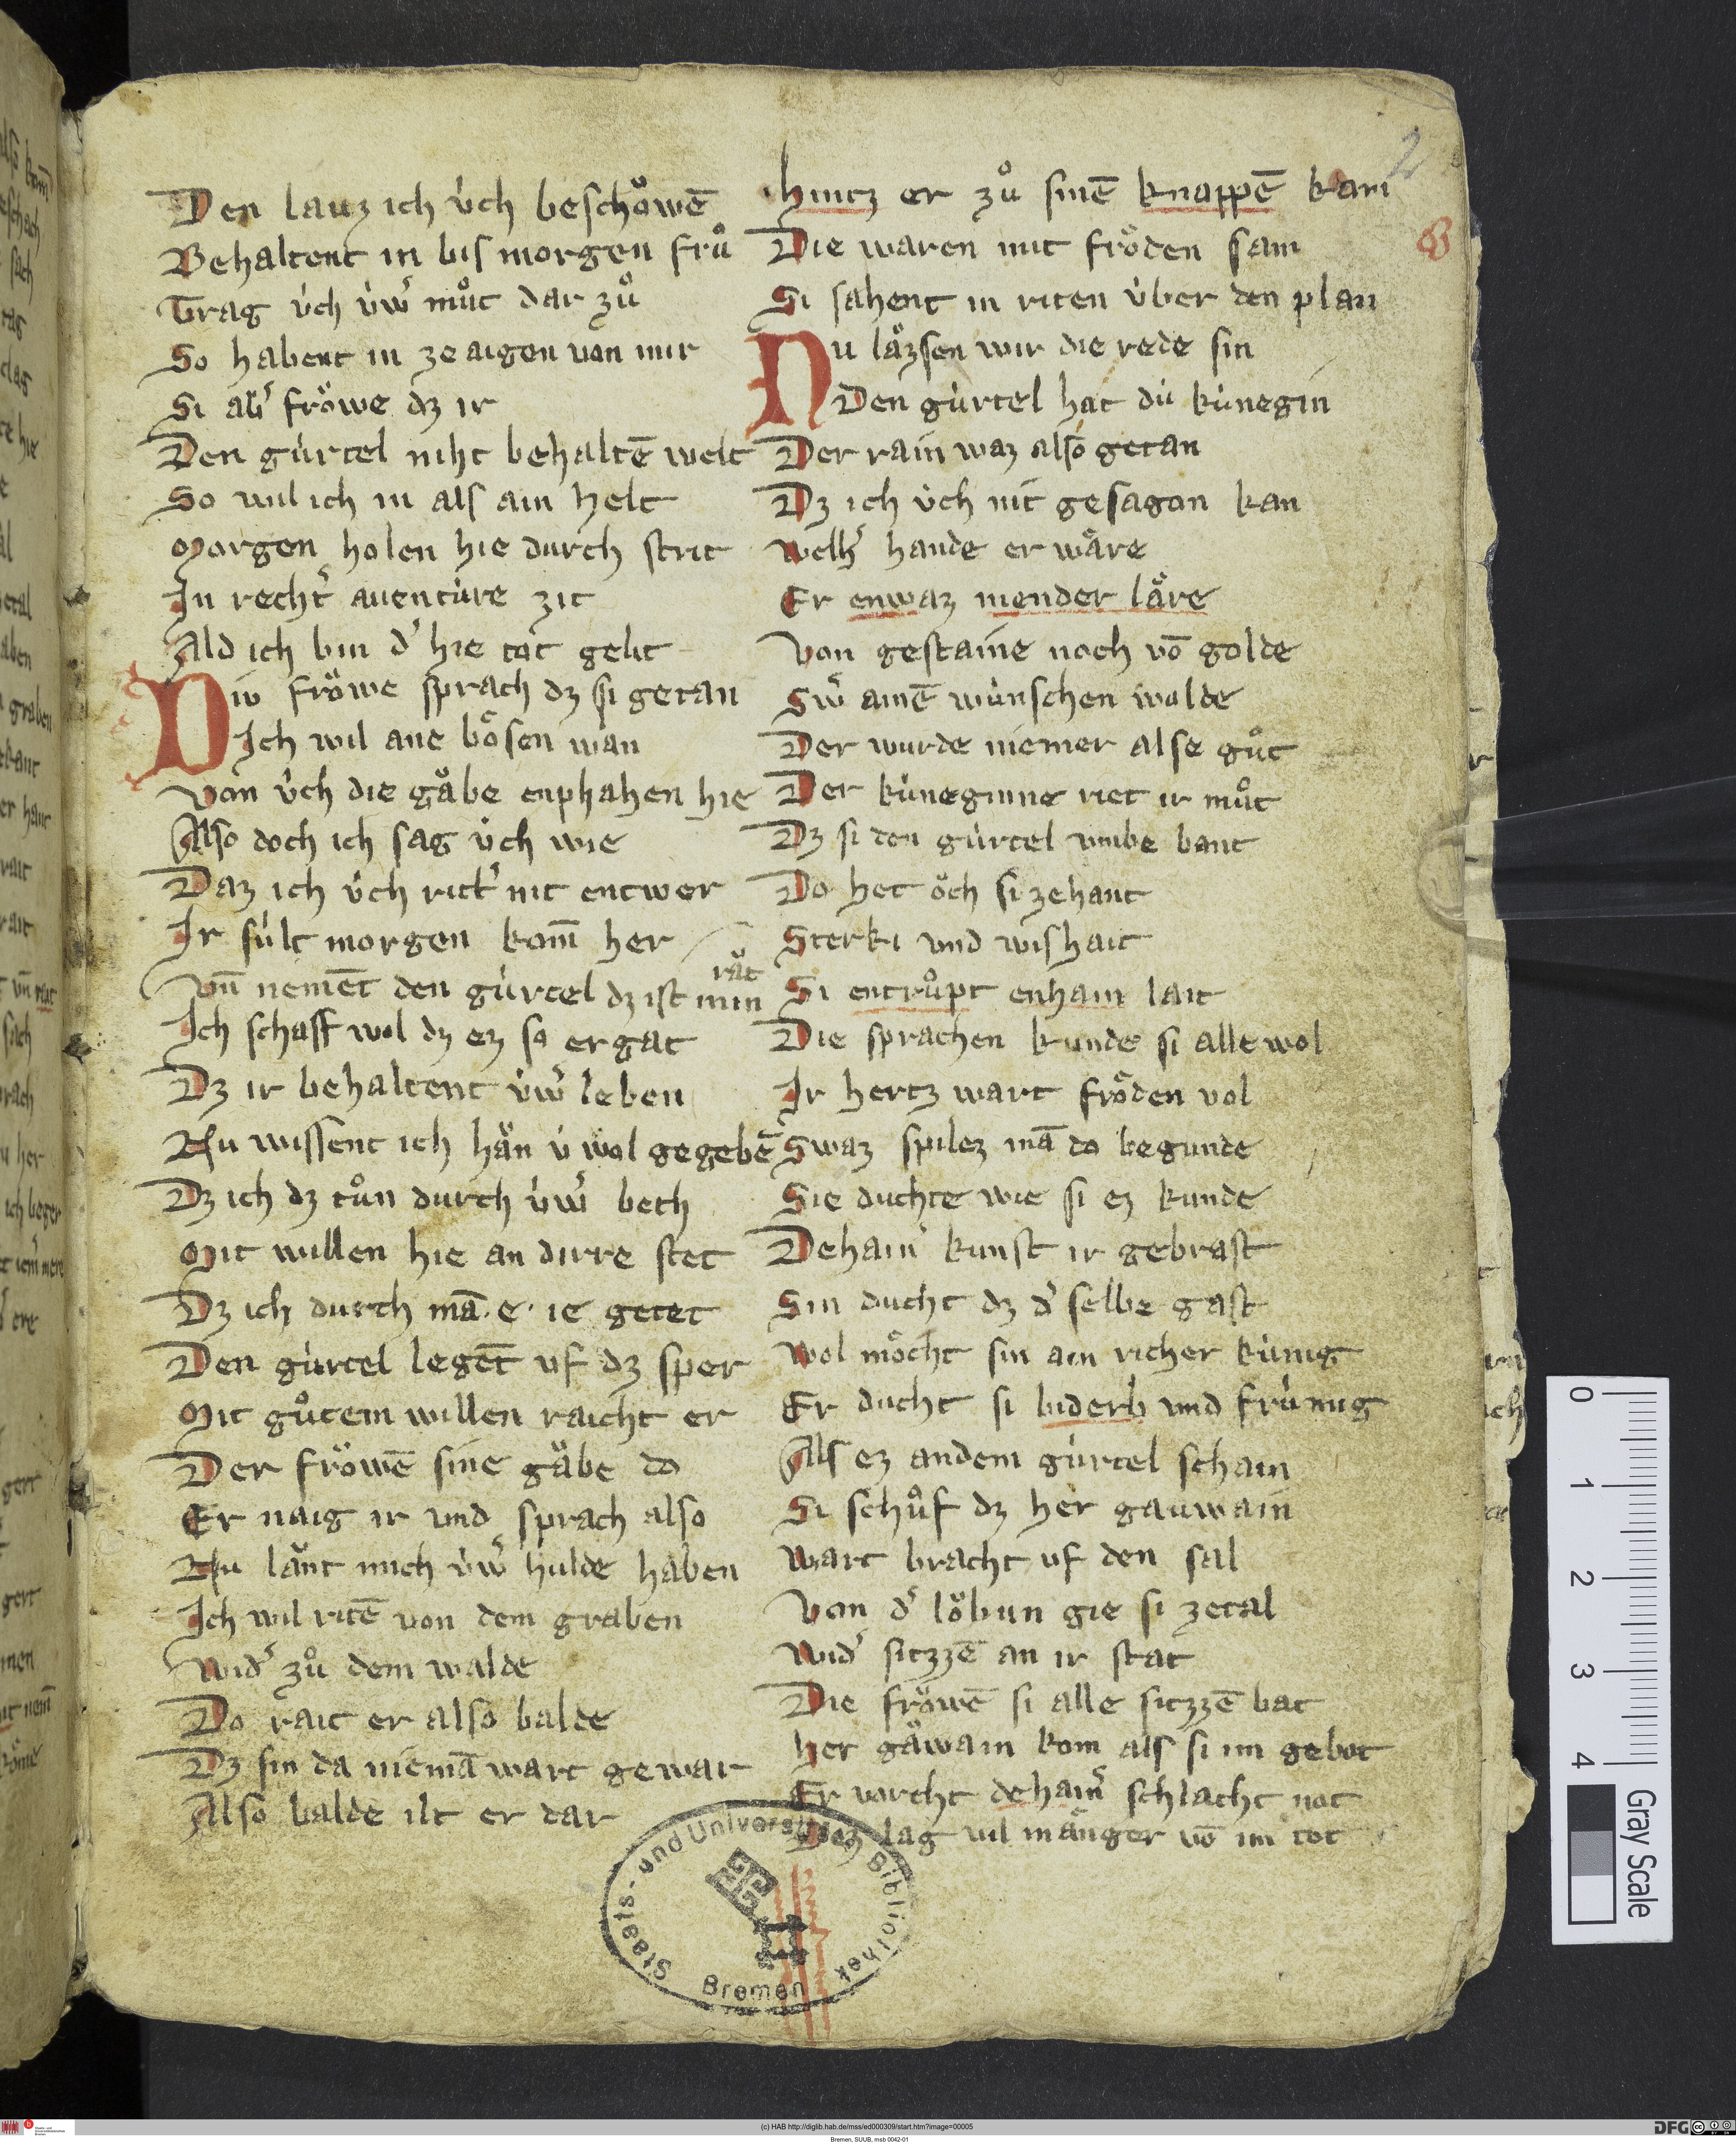 Den lauz ich v́ch beschoͮwē
Behaltent in bis morgen fruͦ
Trag v́ch v́wˀ muͦt dar zuͦ
So habent in ze aigen von mir
Si abˀ froͤwe dz ir
Den gúrtel niht behaltē welt
So wil ich in als ain helt
Morgen holen hie durch strit
In rechtˀ auentúre zit
Ald ich bin dˀ hie tot gelit
Diu froͤwe sprach dz si getan
Ich wil ane boͤsen wan
Von v́ch die gaͤbe enphahen hie
Also doch ich sag v́ch wie
Daz ich v́ch rittˀ nit entwer
Ir súlt morgen kom̄ her
Vn̄ nemēt den gúrtel dz ist min raͧt
Ich schaff wol dz ez so ergat
Dz ir behaltent v́wˀ leben
Nu wissent ich haͧn v́ wol gegebē
Dz ich dz tuͦn durch v́wˀ beth
Mit willen hie an dirre stet
Dz ich durch mā · e · ie getet
Den gúrtel legēt vf dz sper
Mit guͦtem willen raicht er
Der froͤwē sine gaͤbe do
Er naig ir vnd sprach also
Nu laͧnt mich v́wˀ hulde haben
Ich wil ritē von dem graben
Widˀ zuͦ dem walde
Do rait er also balde
Dz sin da niemā wart gewar
Also balde ilt er dar
Hintz er zuͦ sinē knappē kam
Die waren mit froͤden sam
Si sahent in riten v́ber den plan
Nu laͧzsen wir die rede sin
Den gúrtel hat dú kúnegin
Der rain waz also getan
Dz ich v́ch nit gesagan kan
Welhˀ hande er waͤre
Er enwaz niender laͤre
Von gestaine noch vō golde
Swˀ ainē wúnschen wolde
Der wurde niemer alse guͦt
Der kúneginne riet ir muͦt
Dz si den gúrtel vmbe bant
Do het oͤch si zehant
Sterki vnd wishait
Si entruͦpt enhain lait
Die sprachen kunde si alle wol
Ir hertz wart froͤden vol
Swaz spilez mā do begunde
Sie duchte wie si ez kunde
Dehain kunst ir gebrast
Sin ducht dz dˀ selbe gast
Wol moͤcht sin ain richer kúnig
Er ducht si biderb vnd frúmig
Als ez andem gúrtel schain
Si schuͦf dz her gauwain
Wart bracht vf den sal
Von dˀ loͤbun gie si zetal
Widˀ sitzzē an ir stat
Die froͤwē si alle sitzzē bat
Her gaͧwain kom als si im gebot
Er vorcht dehainˀ schlacht not
lag vil maͤnger vō im tot
2
Staats- und Universitäts Bibliothek
Bremen
0 1 2 3 4
Gray Scale
(c) HAB http://diglib.hab.de/mss/ed000309/start.htm?image=00005
Bremen, SUUB, msb 0042-01
DFG